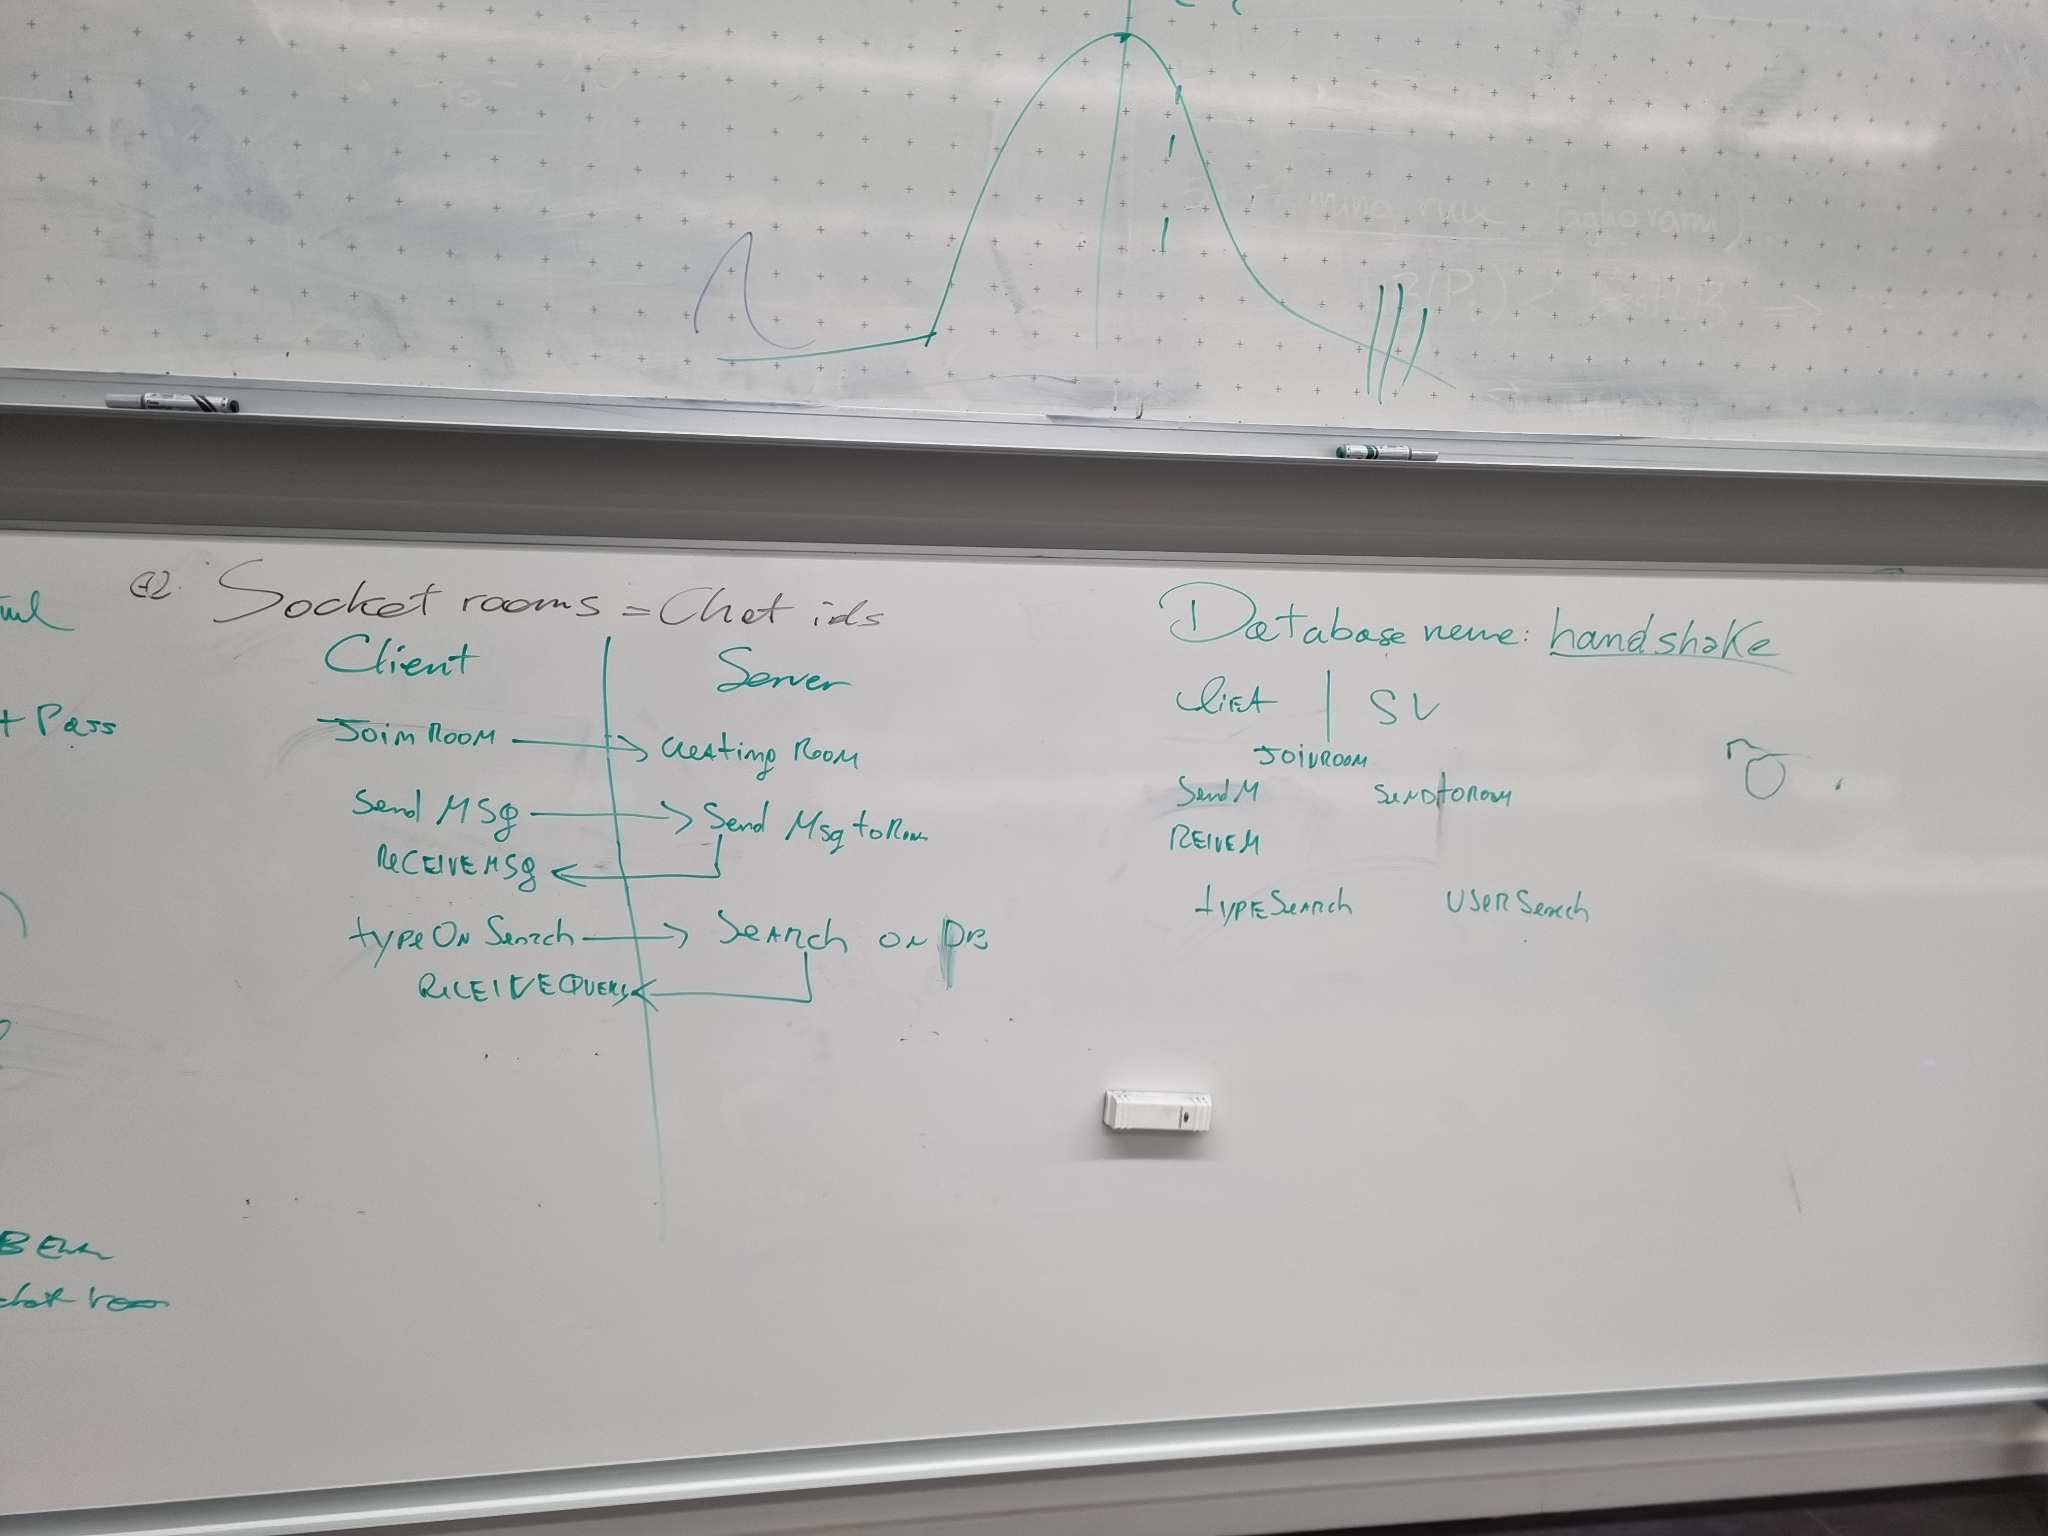 Socket rooms = Chat ids
Client Server
JOIN ROOM → Creating Room
Send MSG → Send Msg to Room
RECEIVE MSG ←
type ON Search → Search ON DB
RECEIVE QUERY ←
Database name: handshake
Client | SV
JOINROOM
SendM SENDTOROOM
REIVEM
tYPESearch USERSearch
+ Pass
chat room